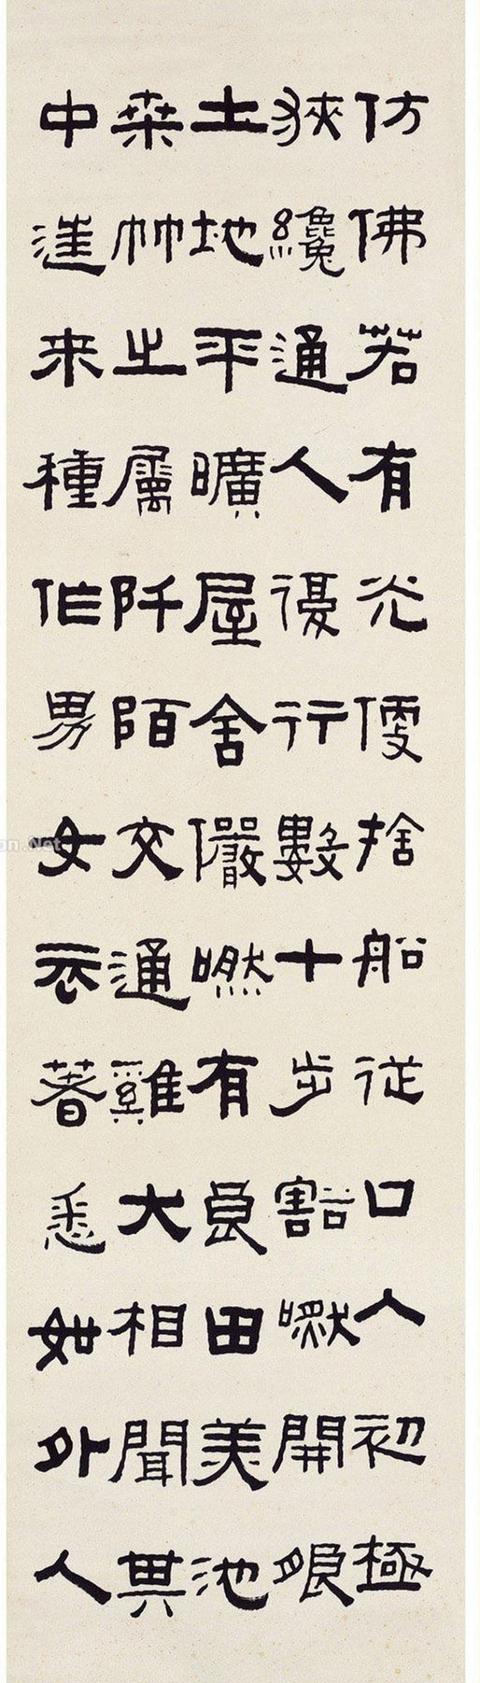 仿佛若有光便捨船從口入初極
狹纔通人復行數十步豁嘫開朖
土地平曠屋舍儼嘫有良田美池
桒竹之屬阡陌交通雞犬相聞其
中往來種作男女衣著悉如外人
on.Net